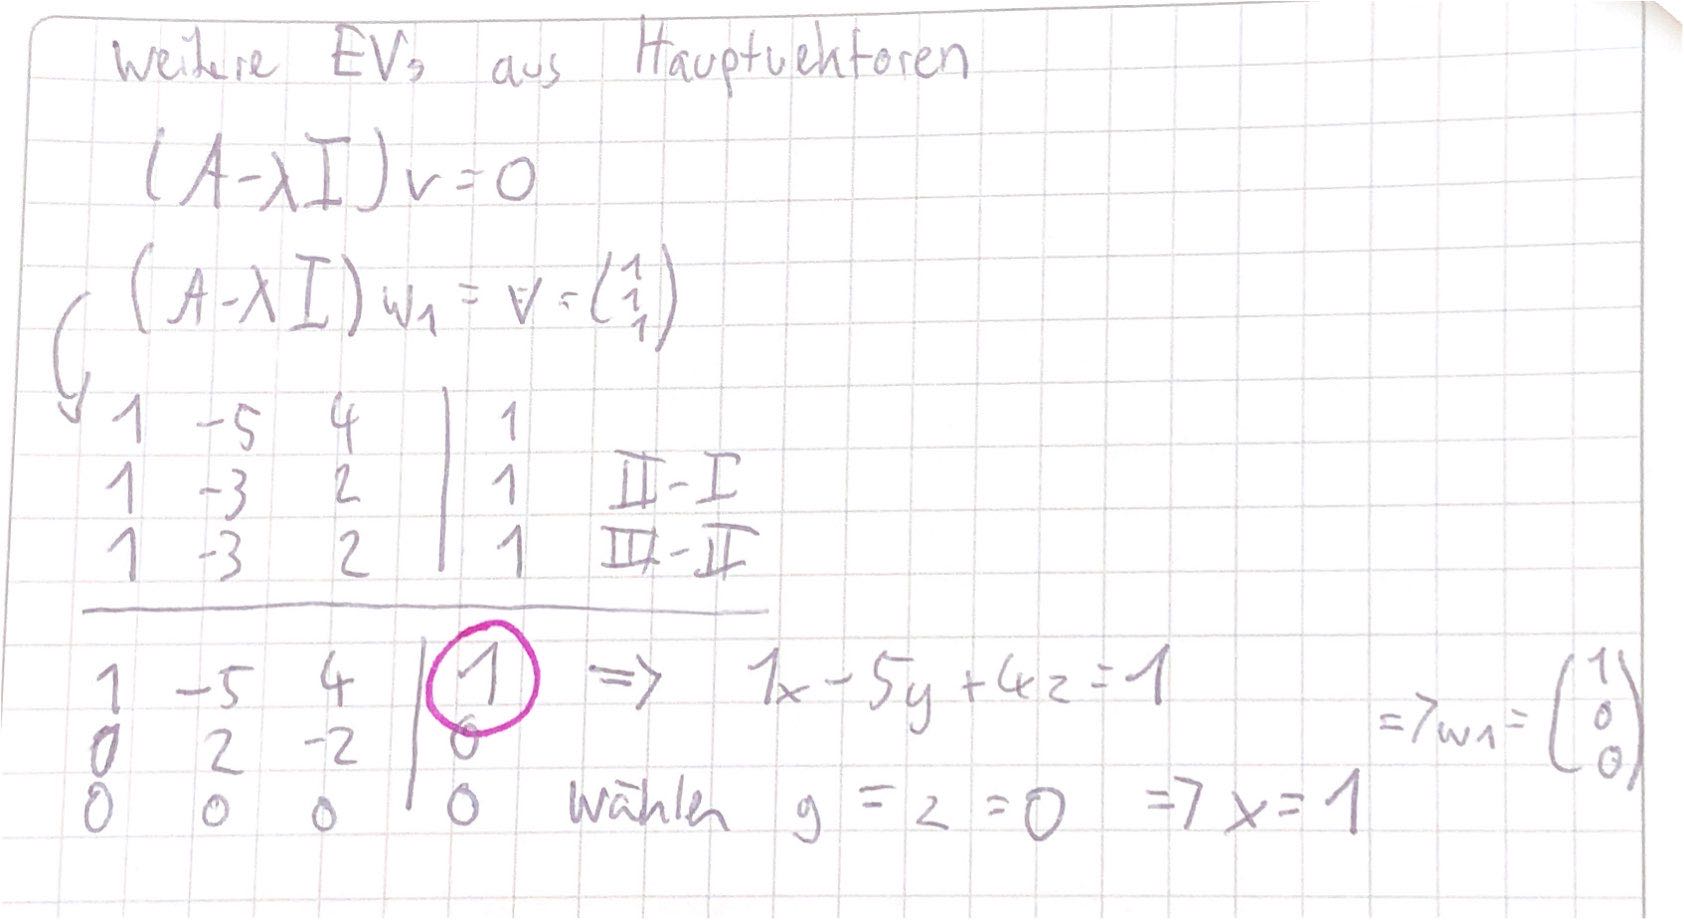 weitere EVs aus Hauptvektoren
(A-λI)v=0
(A-λI)w₁ = v = (1 1 1)
1 -5 4 | 1
1 -3 2 | 1 II-I
1 -3 2 | 1 III-II
1 -5 4 | 1 => 1x-5y+4z=1
0 2 -2 | 0 => w₁ = (1 0 0)
0 0 0 | 0 wählen y = z = 0 => x = 1